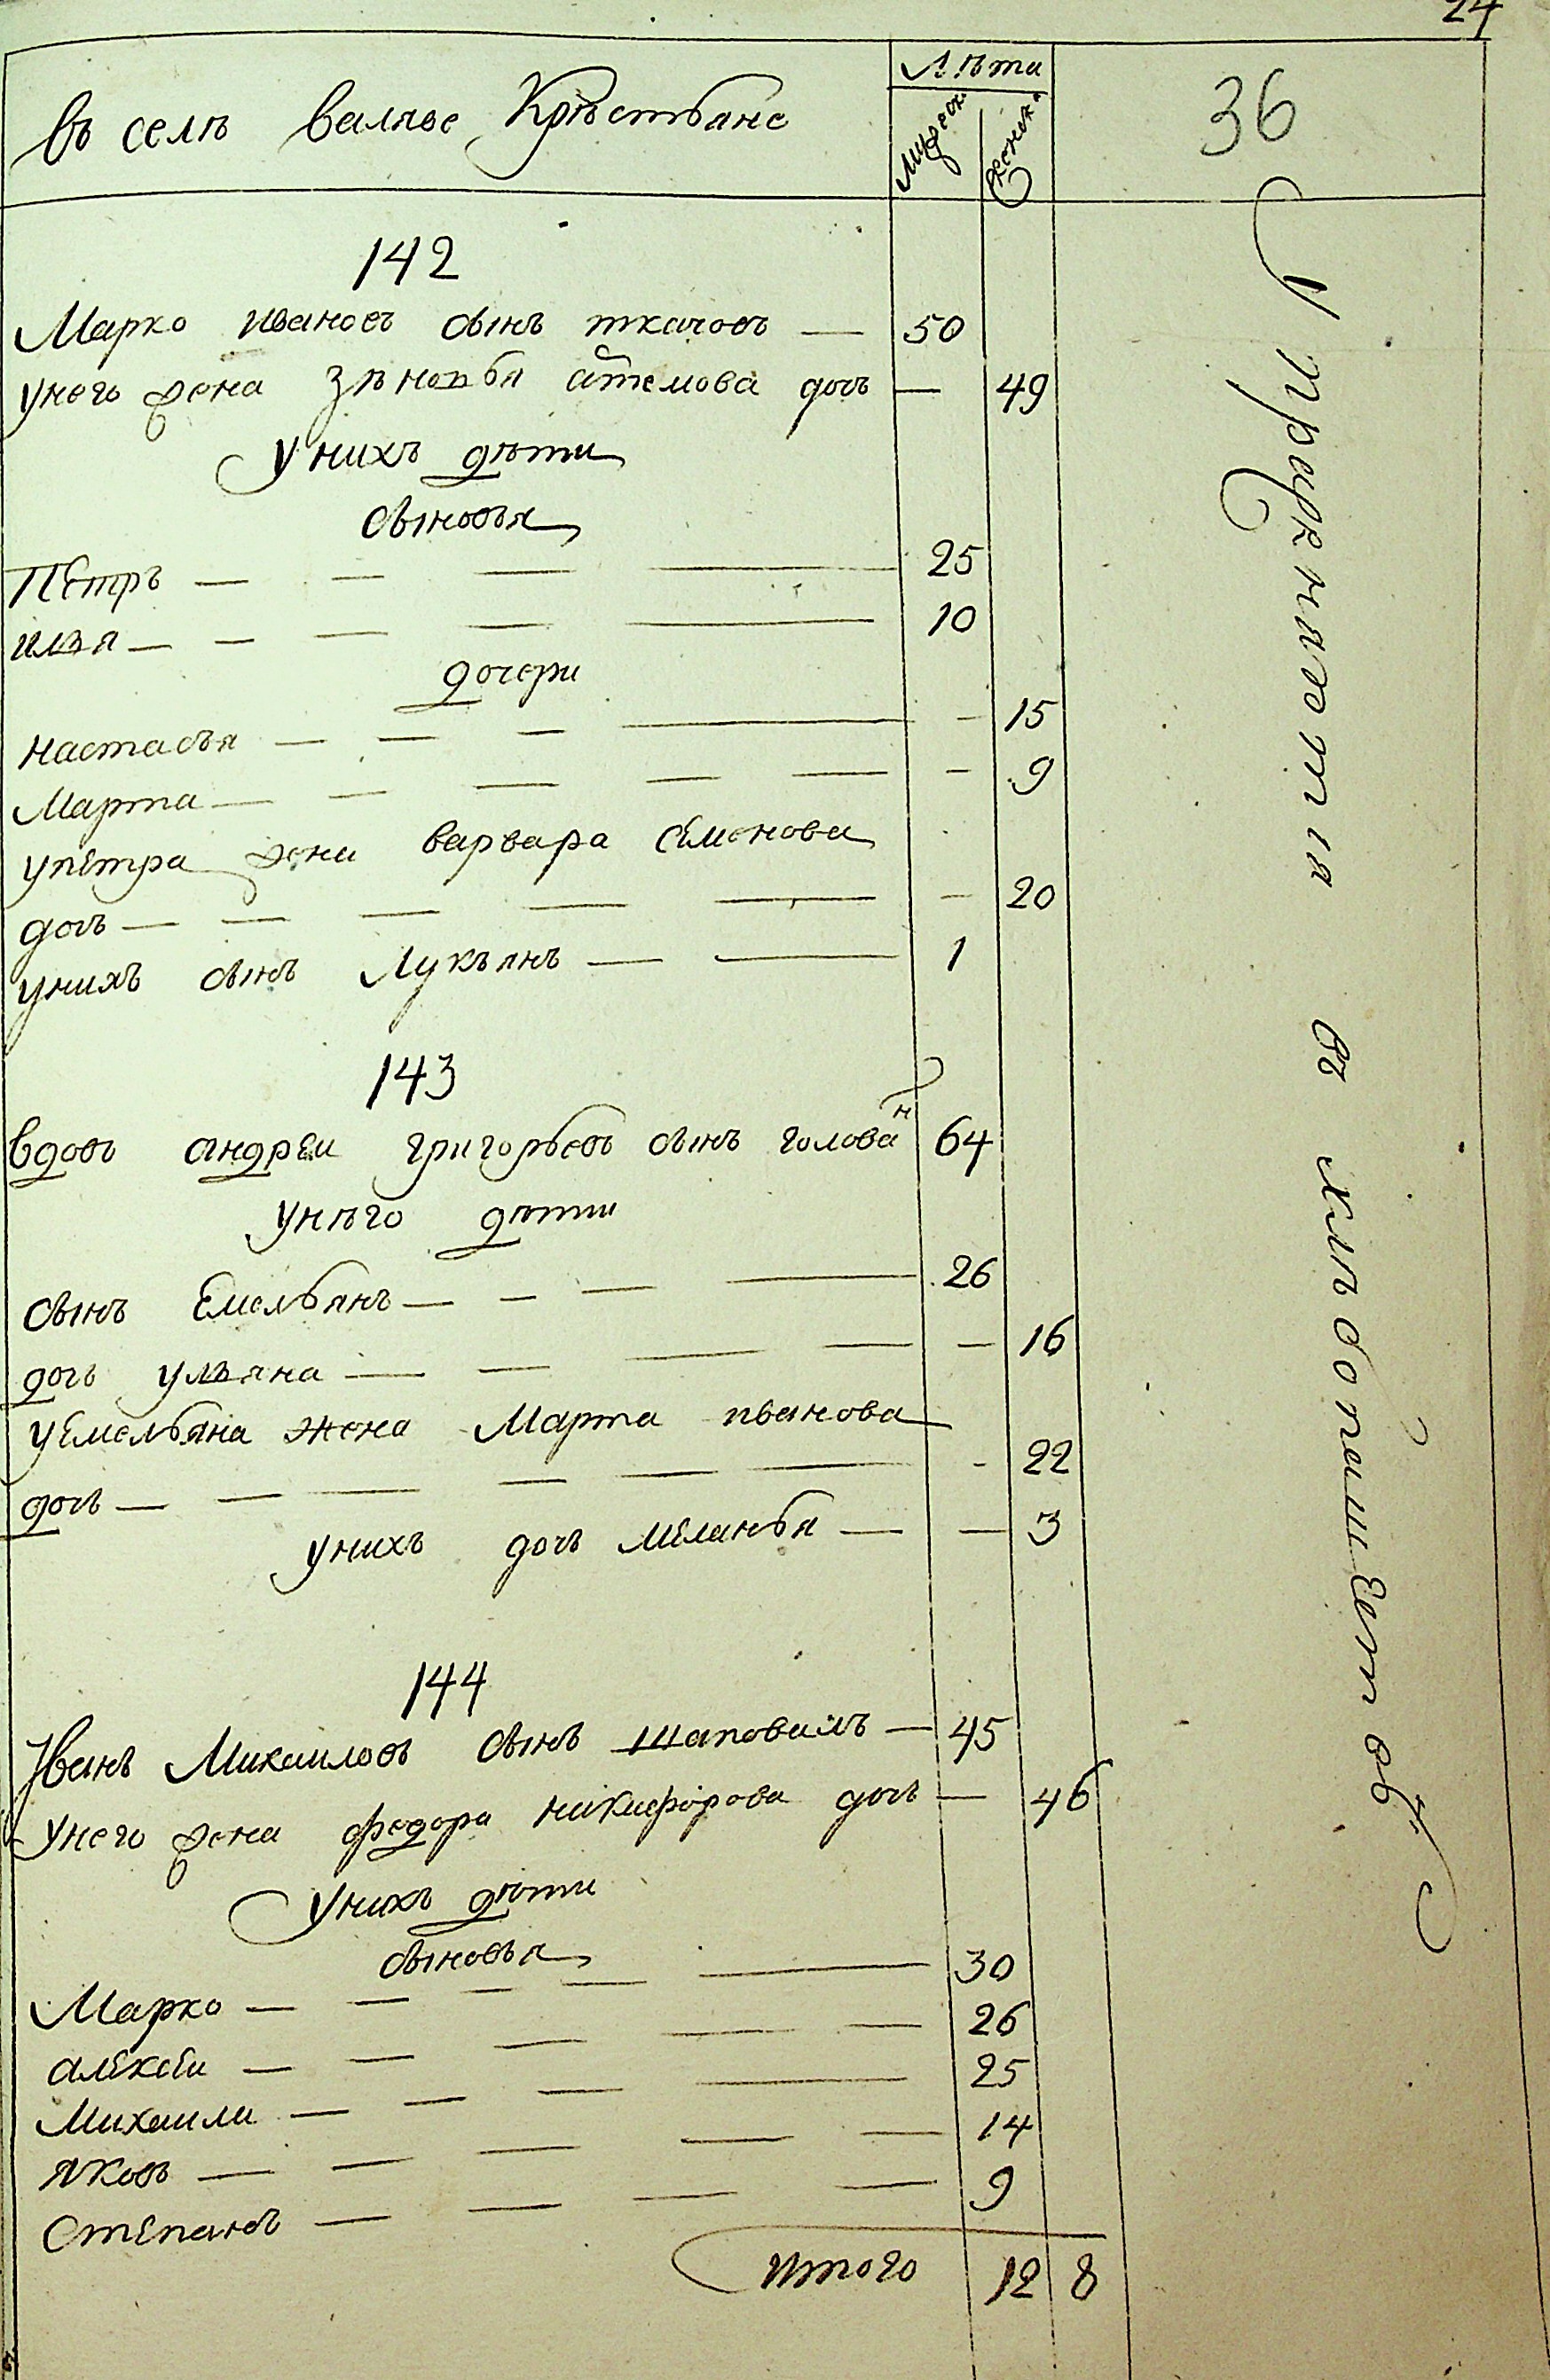 24
въ селѣ валяве Крѣстьяне
Лѣта
мужеск
женск
36
142
Марко ивановъ сынъ ткачовъ — 50
унего жена Зѣновья артемова дочь — 49
унихъ дѣти
сыновья
Петръ — — — — 25
илья — — — — — 10
дочери
настасья — — — — — 15
Марта — — — — — — 9
упетра жена варвара семенова
дочь — — — — — — 20
унихъ сынъ Лукъянъ — — 1
143
вдовъ андреи григорьевъ сынъ голован 64
унѣго дѣти
сынъ Емельянъ — — — — 26
дочь ульяна — — — — — 16
уЕмельяна жена Марта иванова
дочь — — — — — — 22
унихъ дочь меланья — — 3
144
Иванъ Михаиловъ сынъ шаповалъ — 45
унего жена федора никифорова дочь — 46
унихъ дѣти
сыновья
Марко — — — — — 30
алексеи — — — — — 26
Михаили — — — — 25
яковъ — — — — — 14
Степанъ — — — — 9
итого 12 8
Упражняются въ хлѣбопашествѣ